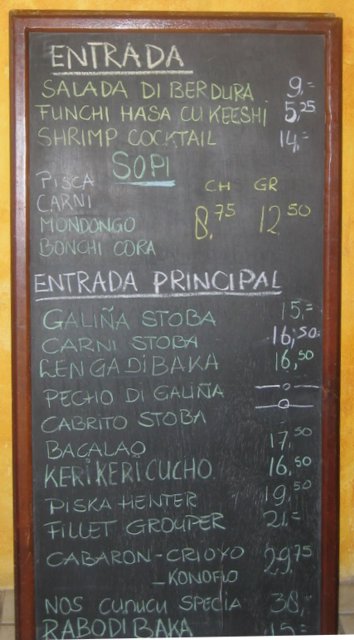 ENTRADA
SALADA DI BERDURA 9,=
FUNCHI HASA CU KEESHI 5,25
SHRIMP COCKTAIL 14,=
SOPI
PISCA CH GR
CARNI
MONDONGO 8,75 12,50
BONCHI CORA
ENTRADA PRINCIPAL
GALIÑA STOBA 15,=
CARNI STOBA 16,50
LENGA DI BAKA 16,50
PECHO DI GALIÑA —o—
CABRITO STOBA —o—
BACALAO 17,50
KERI KERI CUCHO 16,50
PISKA HENTER 19,50
FILLET GROUPER 21,=
CABARON-CRIOYO 29,75
-KONOFLO
NOS CUNUCU SPECIA 38,=
RABO DI BAKA 15,=